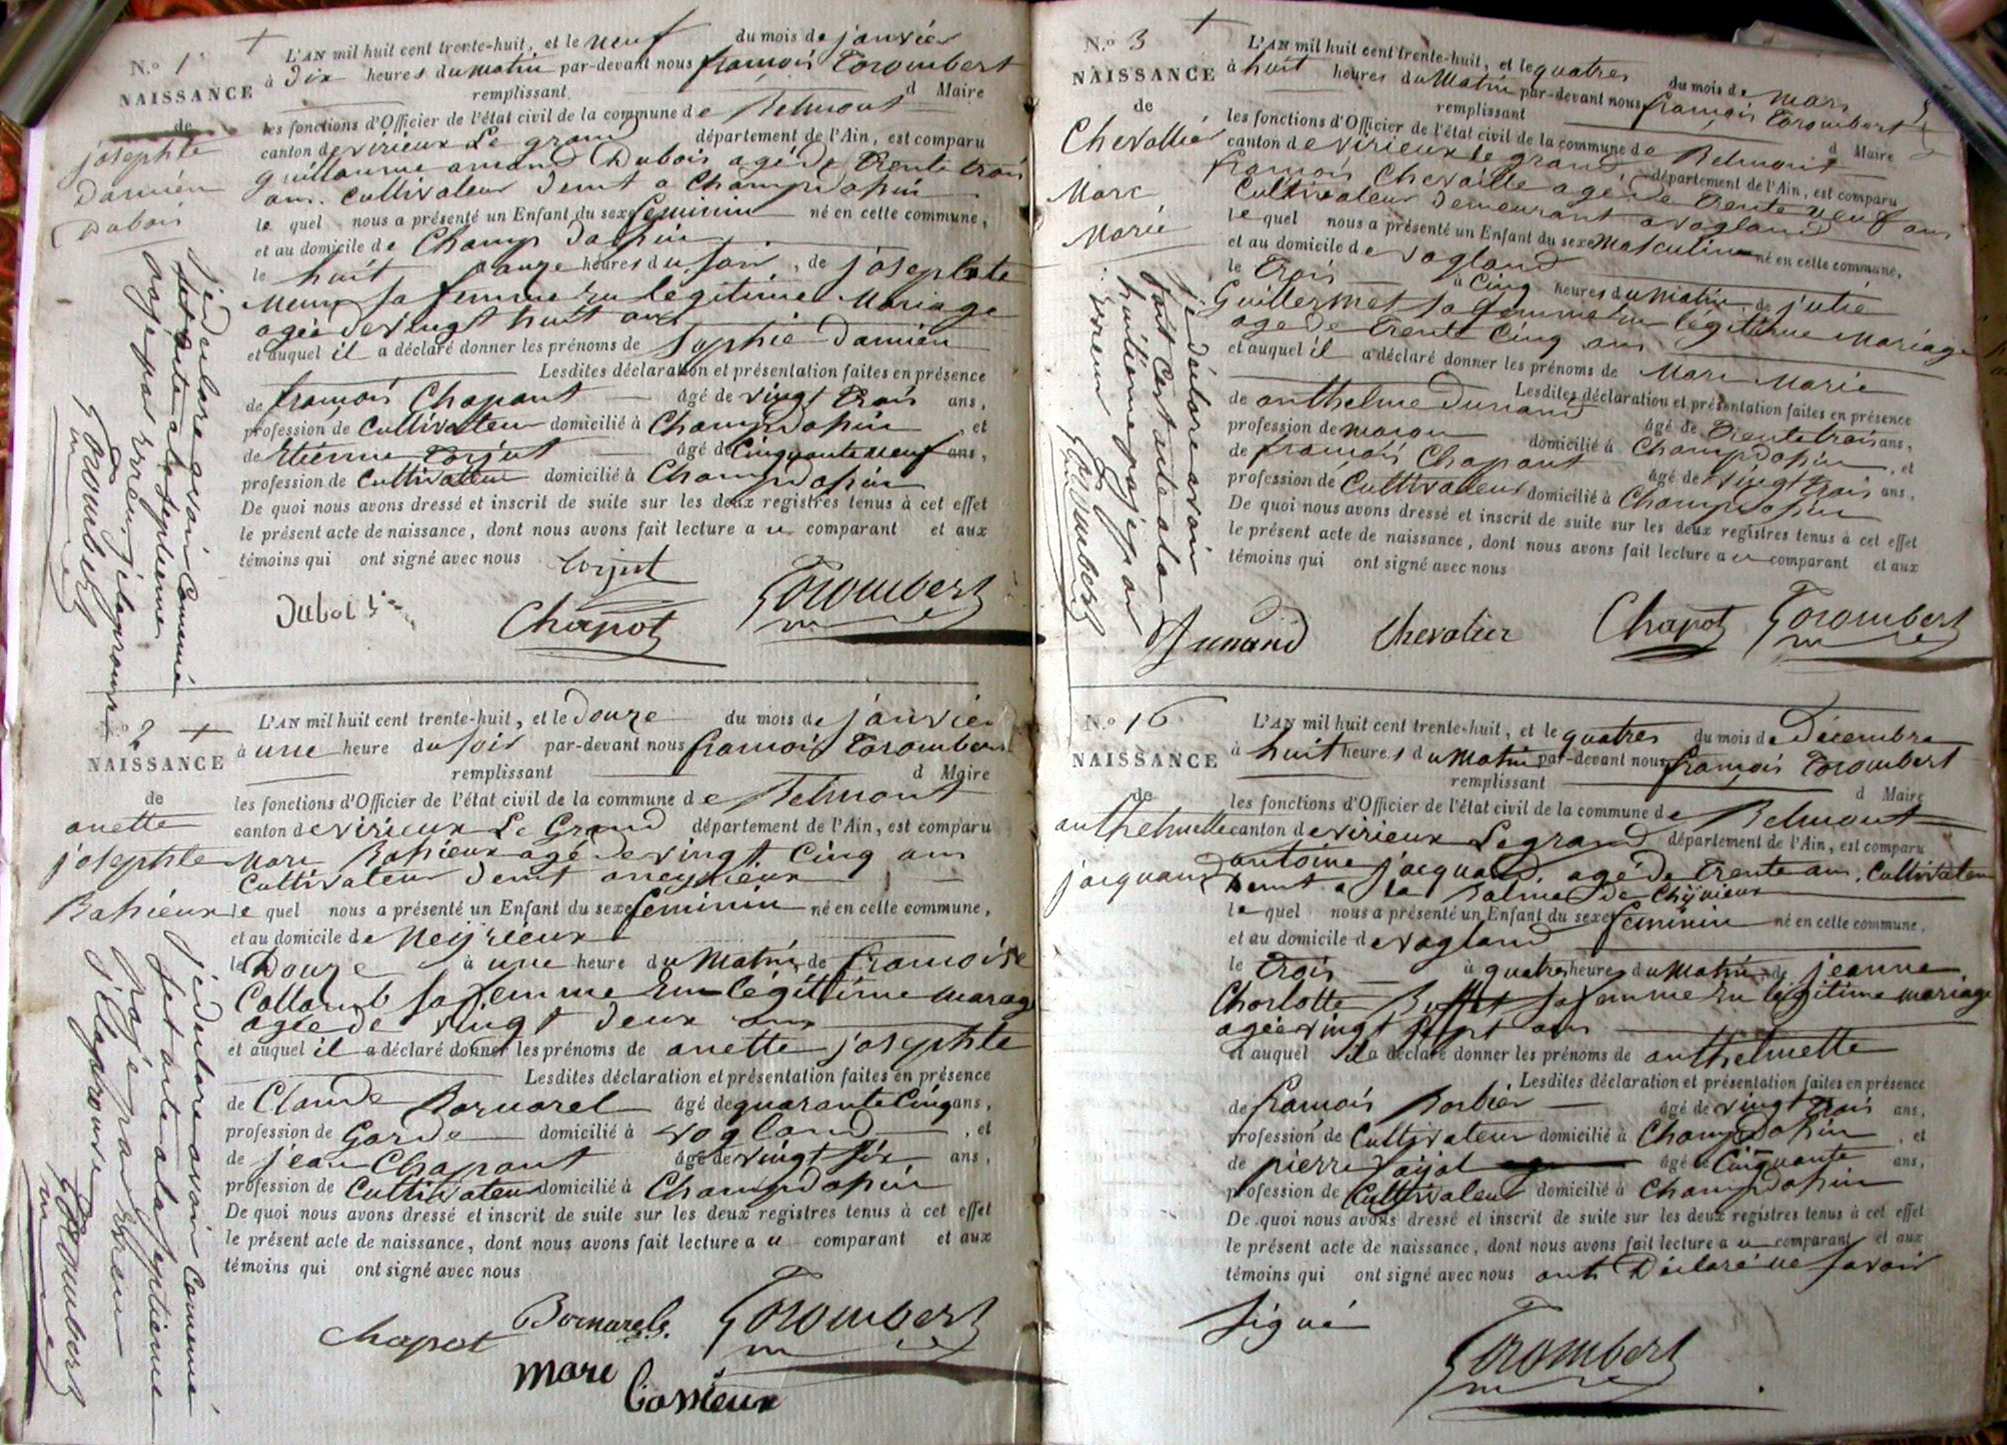 N.º 1
NAISSANCE
de
josephte
Damien
Dubois
L'AN mil huit cent trente-huit, et le neuf du mois de janvier
à Dix heures du matin par-devant nous françois Torombert
remplissant d Maire
les fonctions d'Officier de l'état civil de la commune de Belmont
canton de virieux Le grand département de l'Ain, est comparu
guillaume amand Dubois agé de trente trois
ans. cultivateur demt a Champdosin
le quel nous a présenté un Enfant du sexe feminin né en cette commune,
et au domicile de Champ dosin
le huit a onze heures du soir, de josephte
sa femme en légitime Mariage
agée de vingt huit ans
et auquel il a déclaré donner les prénoms de Sophie Damien
Lesdites déclaration et présentation faites en présence
de françois Chapant âgé de vingt trois ans,
profession de Cultivateur domicilié à Champdosin, et
de Etienne Torjut âgé de Cinquante neuf ans,
profession de Cultivateur domicilié à Champdosin
De quoi nous avons dressé et inscrit de suite sur les deux registres tenus à cet effet
le présent acte de naissance, dont nous avons fait lecture au comparant et aux
témoins qui ont signé avec nous
Torjut
Dubois
Chapot
Torombert
je declare avoir Commencé
set acte a la septieme
page par erreur, je laprouve
Torombert
N.º 2
NAISSANCE
de
anette
josephte
L'AN mil huit cent trente-huit, et le Douze du mois de janvier
à une heure du soir par-devant nous françois Torombert
remplissant d Maire
les fonctions d'Officier de l'état civil de la commune de Belmont
canton de virieux Le Grand département de l'Ain, est comparu
Marc agé de vingt Cinq ans
Cultivateur demt a neyrieux
le quel nous a présenté un Enfant du sexe feminin né en cette commune,
et au domicile de Neyrieux
le Douze à une heure du Matin, de francoise
Colland sa femme en légittime marage
agée de vingt deux ans
et auquel il a déclaré donner les prénoms de anette josephte
Lesdites déclaration et présentation faites en présence
de Claude Bornarel âgé de quarante Cinq ans,
profession de Garde domicilié à vogland, et
de jean Chapant âgé de vingt six ans,
profession de Cultivateur domicilié à Champdosin
De quoi nous avons dressé et inscrit de suite sur les deux registres tenus à cet effet
le présent acte de naissance, dont nous avons fait lecture au comparant et aux
témoins qui ont signé avec nous
Chapot
Bornarel
Torombert
Marc
je declare avoir Commencé
set acte a la septieme
page par Erreur
je laprouve
Torombert
N.º 3
NAISSANCE
de
Chevallier
Marc
Marie
L'AN mil huit cent trente-huit, et le quatres du mois de Mars
à huit heures du Matin par-devant nous françois Torombert
remplissant d Maire
les fonctions d'Officier de l'état civil de la commune de Belmont
canton de virieux le grand département de l'Ain, est comparu
françois Chevallie agé de trente neuf ans
Cultivateur demeurant a vogland
le quel nous a présenté un Enfant du sexe Masculin né en cette commune,
et au domicile de vogland
le Trois à Cinq heures du Matin de julie
Guillermet sa femme en légitime Mariage
age de trente Cinq ans
et auquel il a déclaré donner les prénoms de Marc Marie
Lesdites déclaration et présentation faites en présence
de anthelme Dunand âgé de trente trois ans,
profession de maçon domicilié à Champdosin, et
de françois Chapant âgé de vingt trois ans,
profession de Cultivateur domicilié à Champdosin
De quoi nous avons dressé et inscrit de suite sur les deux registres tenus à cet effet
le présent acte de naissance, dont nous avons fait lecture au comparant et aux
témoins qui ont signé avec nous
Dunand
Chevalier
Chapot
Torombert
je déclare avoir
fait Cest acte a la
huitieme page par
erreur
Torombert
N.º 16
NAISSANCE
de
anthelmette
jacquand
L'AN mil huit cent trente-huit, et le quatres du mois de Décembre
à huit heures du Matin par-devant nous françois Torombert
remplissant d Maire
les fonctions d'Officier de l'état civil de la commune de Belmont
canton de virieux Le grand département de l'Ain, est comparu
antoine jacquand, agé de trente ans, Cultivateur
demt a la Balme de
le quel nous a présenté un Enfant du sexe feminin né en cette commune,
et au domicile de vogland
le trois à quatres heures du Matin de jeanne
Charlotte sa femme en légitime mariage
agée vingt sept ans
et auquel il a déclaré donner les prénoms de anthelmette
Lesdites déclaration et présentation faites en présence
de françois Barbier âgé de vingt trois ans,
profession de Cultivateur domicilié à Champdosin, et
de pierre âgé de Cinquante ans,
profession de Cultivateur domicilié à Champdosin
De quoi nous avons dressé et inscrit de suite sur les deux registres tenus à cet effet
le présent acte de naissance, dont nous avons fait lecture au comparant et aux
témoins qui ont signé avec nous ont Déclaré ne savoir
Signé
Torombert